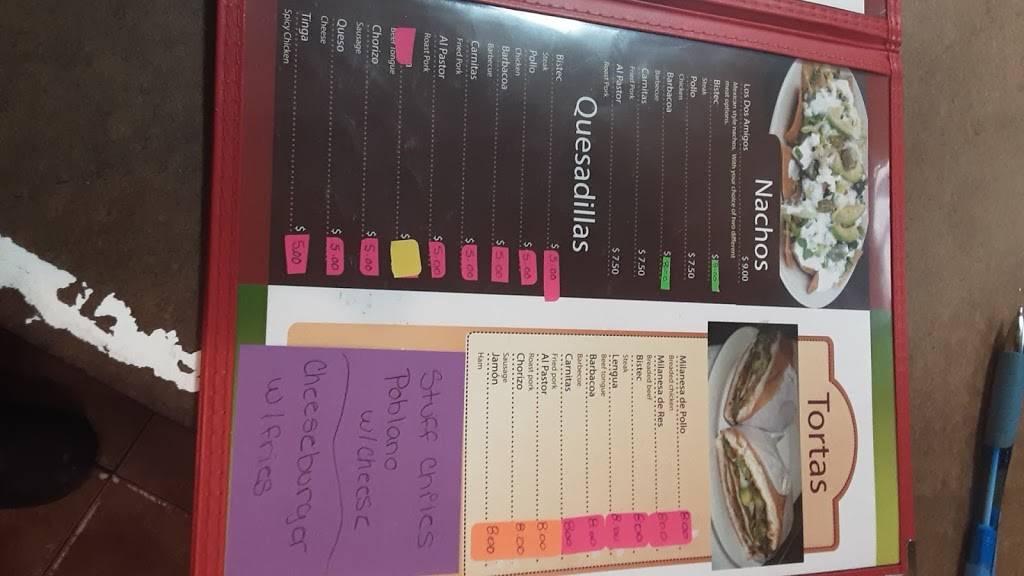 Nachos
Los Dos Amigos $ 9.00
Mexican style nachos. With your choice of two different
meat options.
Bistec $
Steak
Pollo $ 7.50
Chicken
Barbacoa $
Barbecue
Carnitas $ 7.50
Fried Pork
Al Pastor $ 7.50
Roast Pork
Quesadillas
Bistec $ 5.00
Steak
Pollo $ 5.00
Chicken
Barbacoa $ 5.00
Barbecue
Carnitas $ 5.00
Fried Pork
Al Pastor $ 5.00
Roast Pork
$
Beef Tongue
Chorizo $ 5.00
Sausage
Queso $ 5.00
Cheese
Tinga $ 5.00
Spicy Chicken
Tortas
Milanesa de Pollo 8.00
Breaded chicken
Milanesa de Res 8.00
Breaded beef
Bistec 8.00
Steak
Lengua 8.00
Beef tongue
Barbacoa 8.00
Barbecue
Carnitas 8.00
Fried pork
Al Pastor 8.00
Roast pork
Chorizo 8.00
Sausage
Jamón 8.00
Ham
Stuff Chiles
Poblano
w/cheese
Cheeseburger
w/Fries